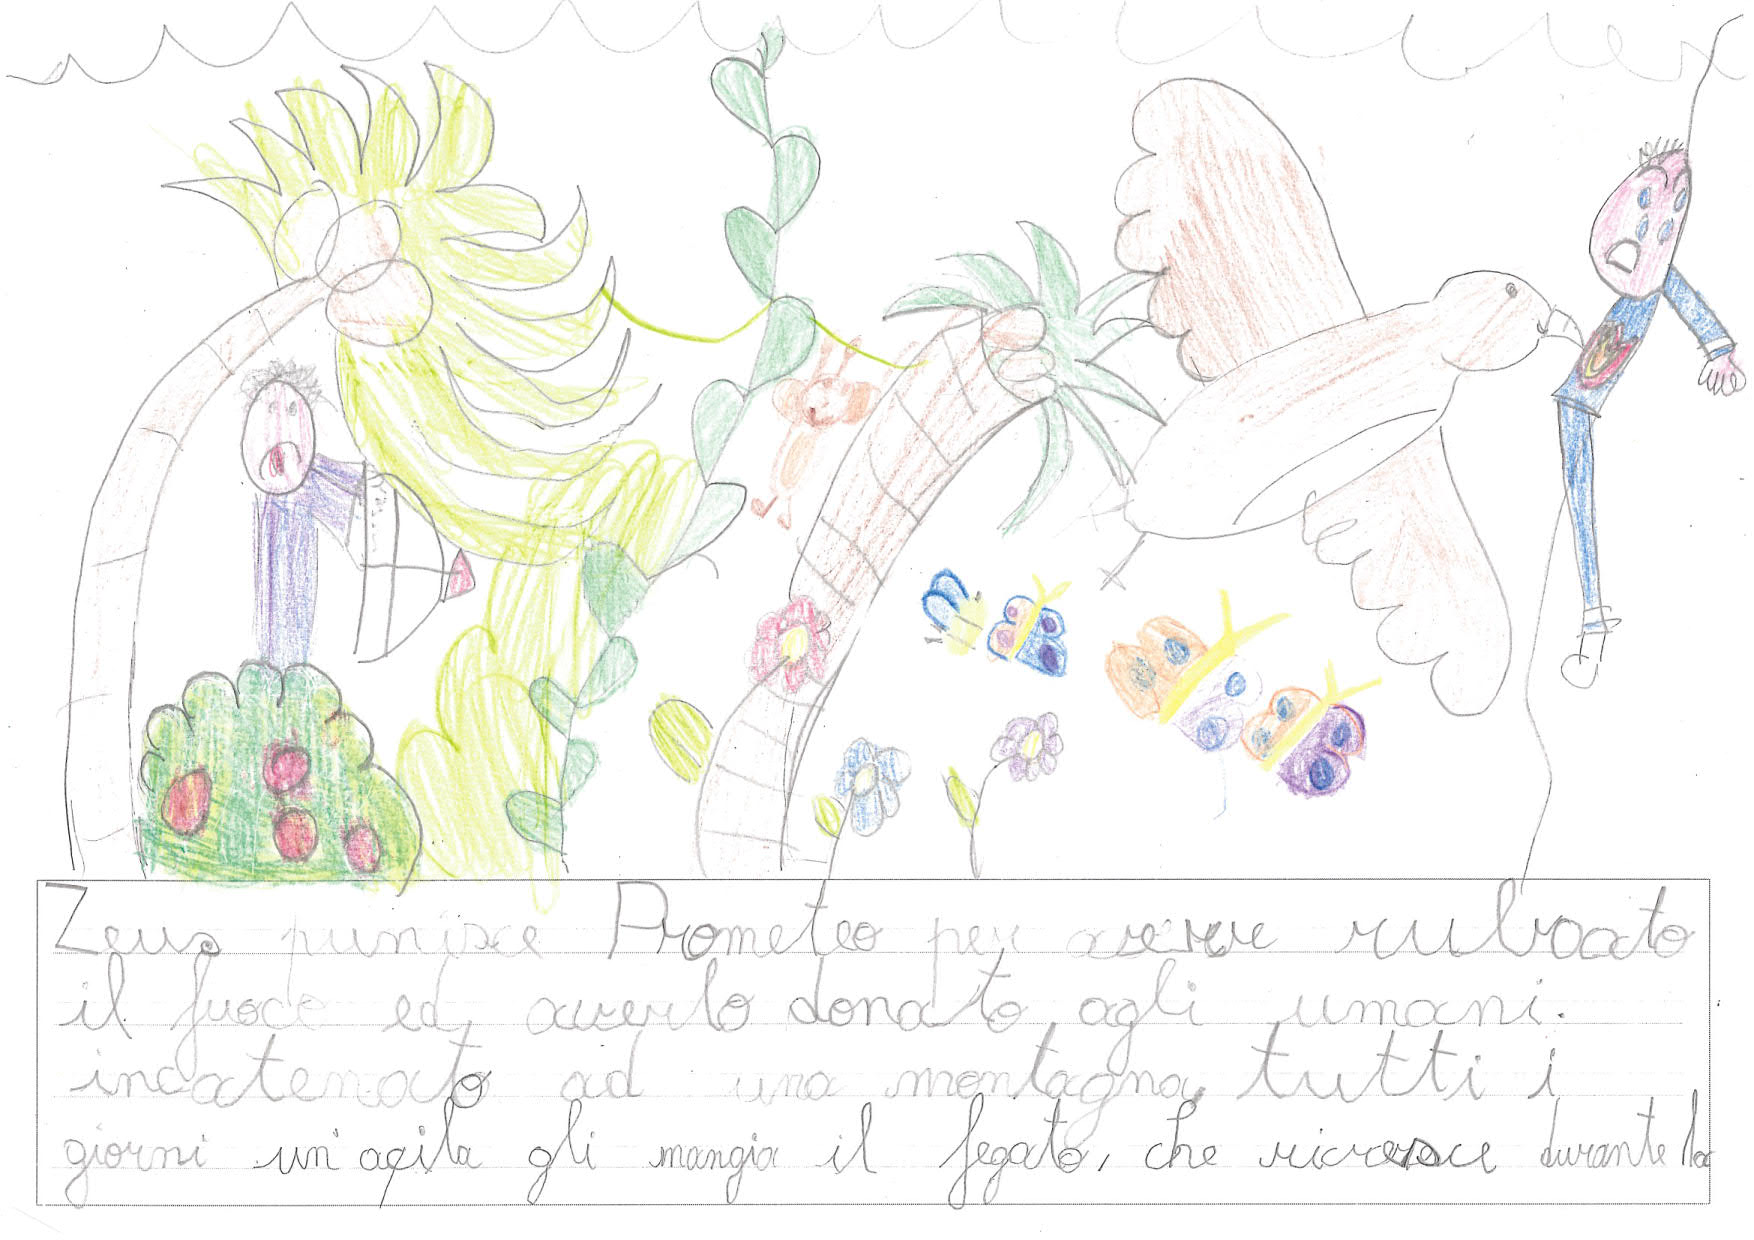 Zeus punisce Prometeo per avere rubato
il fuoco ed averlo donato agli umani.
incatenato ad una montagna, tutti i
giorni un'aqila gli mangia il fegato, che ricresce durante la